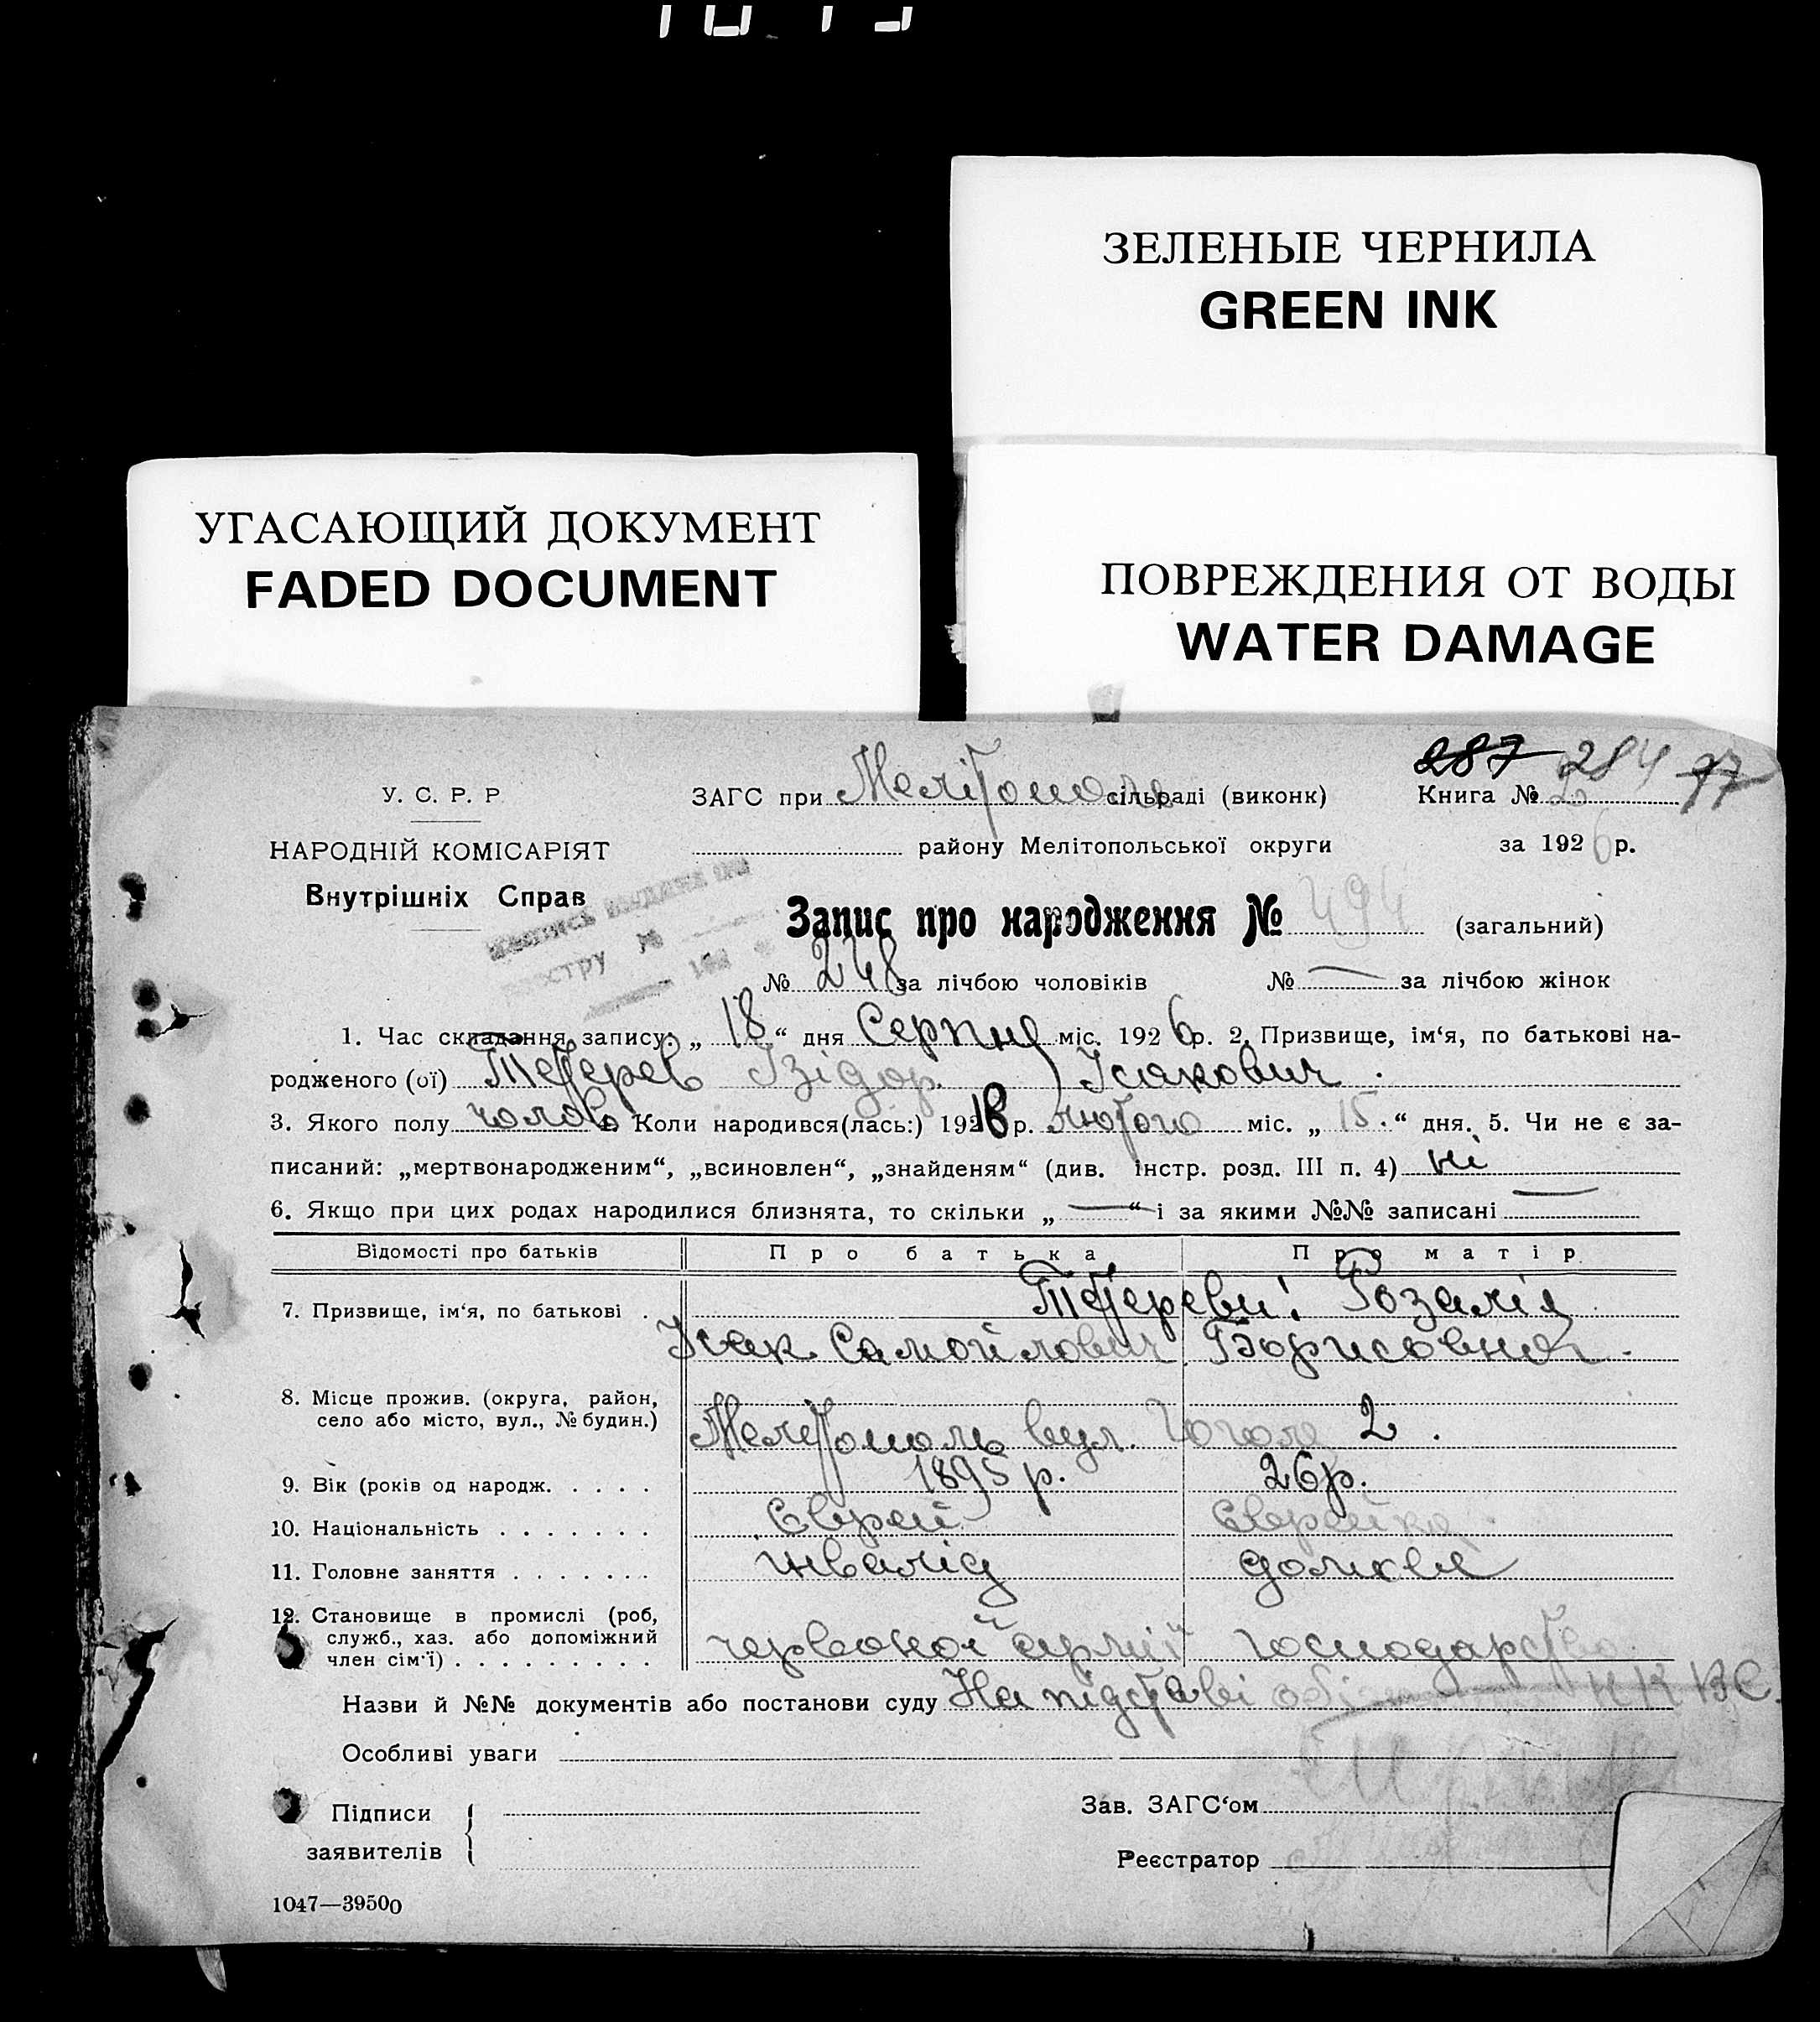 ЗЕЛЕНЫЕ ЧЕРНИЛА
GREEN INK
УГАСАЮЩИЙ ДОКУМЕНТ
FADED DOCUMENT
ПОВРЕЖДЕНИЯ ОТ ВОДЫ
WATER DAMAGE
287 284 77
У. С. Р. Р.
ЗАГС при Мелітополь сільраді (виконк) Книга № 2
НАРОДНІЙ КОМІСАРІЯТ
району Мелітопольської округи за 1926 р.
Внутрішніх Справ
Запис про народження № 494 (загальний)
№ 248 за лічбою чоловіків № — за лічбою жінок
1. Час складання запису: „ 18 “ дня Серпня міс. 1926 р. 2. Призвище, ім‘я, по батькові на-
родженого (ої) Ізідор Ісакович.
3. Якого полу чолов 4. Коли народився(лась:) р. лютого міс. „ 15. “ дня. 5. Чи не є за-
писаний: „мертвонародженим“, „всиновлен“, „знайденям“ (див. інстр. розд. III п. 4) ні
6. Якщо при цих родах народилися близнята, то скільки „ — “ і за якими №№ записані —
Відомості про батьків Про батька Про матір
7. Призвище, ім‘я, по батькові . Розалія
Ісак Самойлович Борисовна.
8. Місце прожив. (округа, район,
село або місто, вул., № будин.)
Мелітополь вул. Гоголя 2.
9. Вік (років од народж. . . . . 1895 р. 26 р.
10. Національність . . . . . . . Єврей Єврейка
11. Головне заняття . . . . . . . інвалід
12. Становище в промислі (роб,
служб., хаз. або допоміжний
член сім‘ї) . . . . . . . . . червоної армії господарства
Назви й №№ документів або постанови суду На підставі НКВС.
Особливі уваги
Підписи
заявителів
Зав. ЗАГС‘ом
Реєстратор
1047—39500